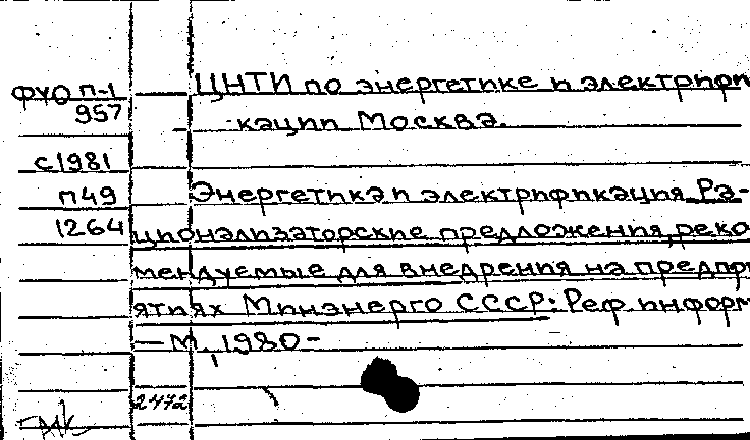 ФУО П-1 ЦНТИ по энергетике и электрифи
957 кации Москва.
с1981
П49 Энергетика и электрификация. Ра-
1264 ционализаторские предложения, реко
мендуемые для внедрения на предпри
ятиях Минэнерго СССР: Реф. информ
— М, 1980-
2472